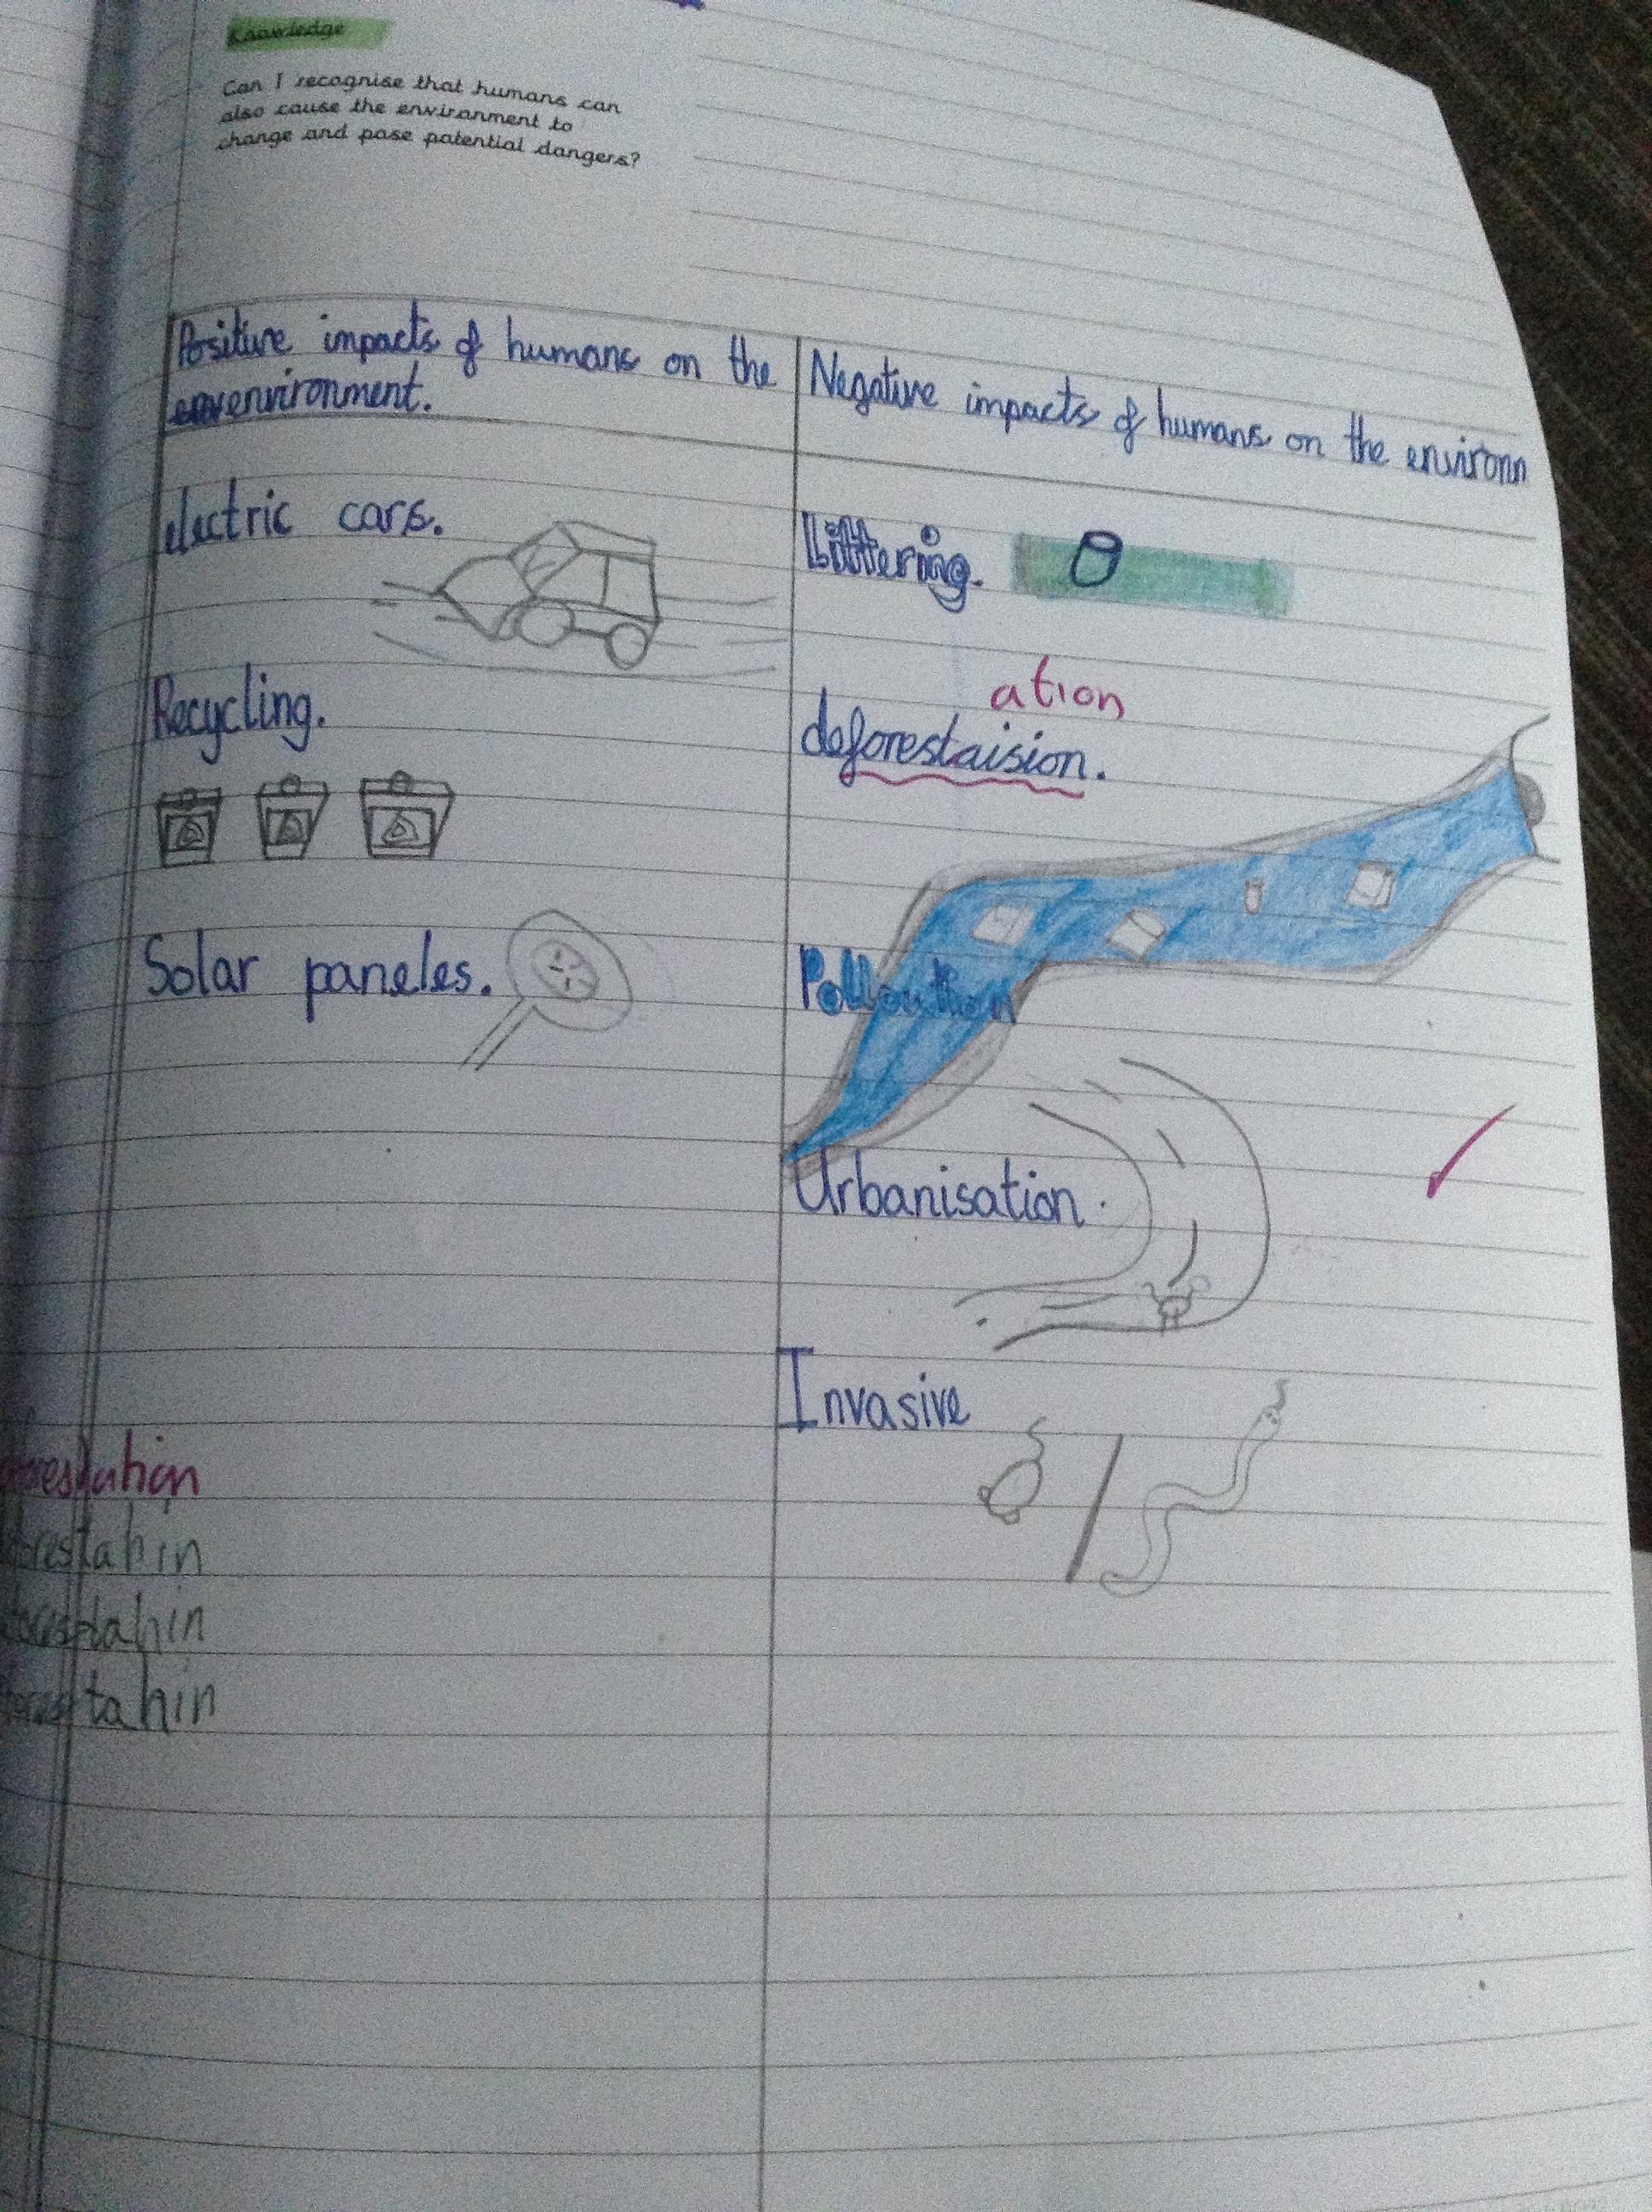 Knowledge
Can I recognise that humans can
also cause the environment to
change and pose potential dangers?
Positive impacts of humans on the
environment.
Negative impacts of humans on the environm
electric cars.
Littering.
Recycling.
ation
deforestaision.
Solar paneles.
Polloution
Urbanisation.
Invasive